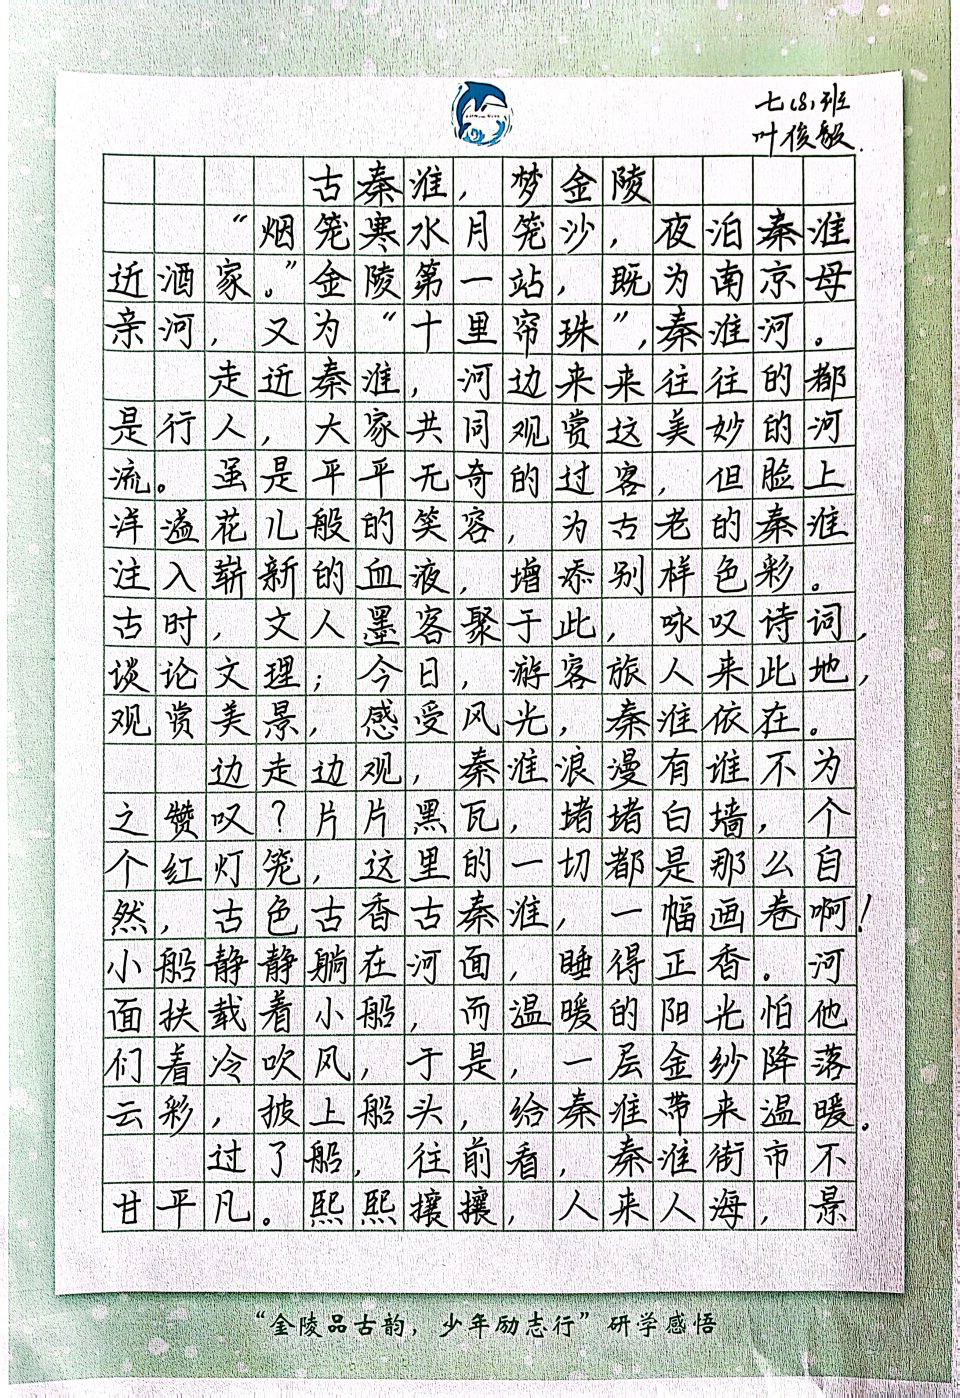 七(8)班
叶俊毅
古秦淮，梦金陵
“烟笼寒水月笼沙，夜泊秦淮
近酒家。”金陵第一站，既为南京母
亲河，又为“十里帘珠”，秦淮河。
走近秦淮，河边来来往往的都
是行人，大家共同观赏这美妙的河
流。虽是平平无奇的过客，但脸上
洋溢花儿般的笑容，为古老的秦淮
注入崭新的血液，增添别样色彩。
古时，文人墨客聚于此，咏叹诗词，
谈论文理；今日，游客旅人来此地，
观赏美景，感受风光，秦淮依在。
边走边观，秦淮浪漫有谁不为
之赞叹？片片黑瓦，堵堵白墙，个
个红灯笼，这里的一切都是那么自
然，古色古香古秦淮，一幅画卷啊！
小船静静躺在河面，睡得正香。河
面扶载着小船，而温暖的阳光怕他
们着冷吹风，于是，一层金纱降落
云彩，披上船头，给秦淮带来温暖。
过了船，往前看，秦淮街市不
甘平凡。熙熙攘攘，人来人海，景
“金陵品古韵，少年励志行”研学感悟